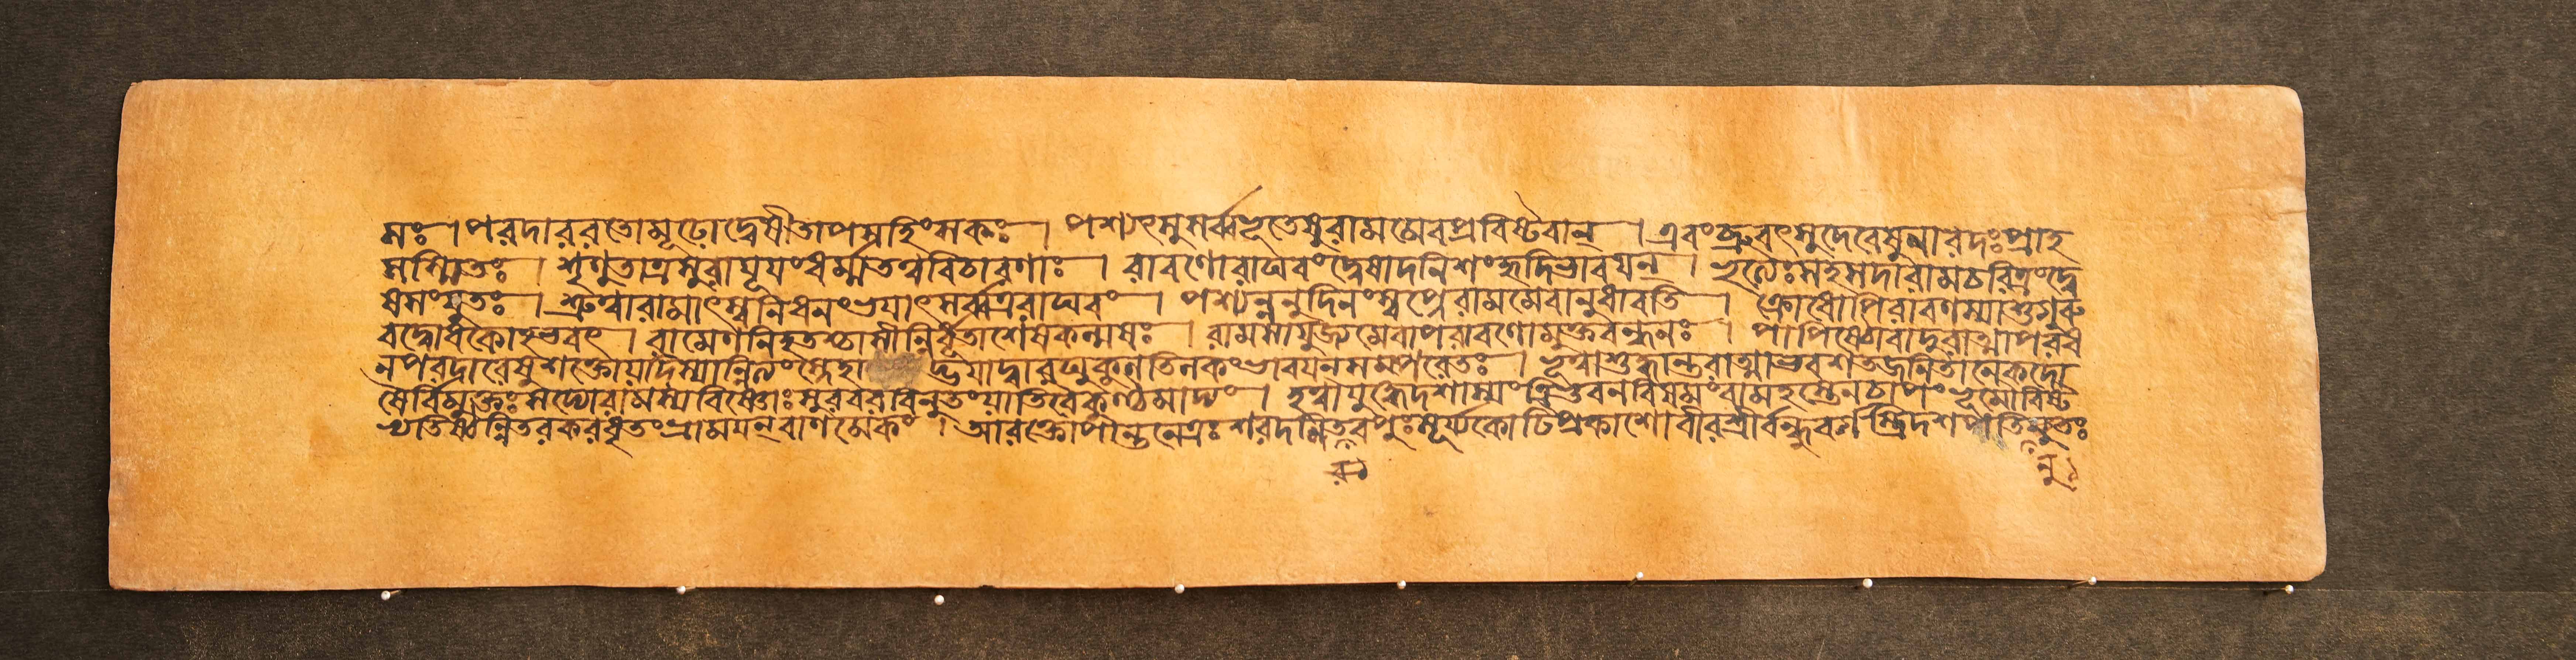 সঃ । পরদাররতো মূঢো দ্বেষী তাপসহিংসকঃ । পশ্যৎসু সর্ব্বভূতেষু রামমেব প্রবিষ্টবান্ । এবং ব্রুবৎসু দেবেষু নারদঃ প্রাহ
সস্মিতঃ । শৃণুতাত্র সুরা যূয়ং ধর্ম্মতত্ত্ববিচারণাঃ । রাবণো রাঘবং দ্বেষাদনিশং হৃদি ভাবয়ন্ । ভৃত্যৈঃ সহ সদা রামচরিত্রং দ্বে
ষসংযুতঃ । শ্রুত্বা রামাৎ স্বনিধনং ভয়াৎ সর্ব্বত্র রাঘবং । পশ্যন্ননুদিনং স্বপ্নে রামমেবানুধাবতি । ক্রোধোপি রাবণস্যাশু গুরু
বদ্বোধকোঽভবৎ । রামেণ নিহতশ্চাসৌ নির্ধূতাশেষকল্মষঃ । রামসাযুজ্যমেবাপ রাবণো মুক্তবন্ধনঃ । পাপিষ্ঠো বা দুরাত্মা পরধ
নপরদারেষু শক্তো যদি স্যান্নিত্যং স্নেহা দ্ভয়াদ্বা রঘুকুলতিলকং ভাবয়ন সম্পরেতঃ । ভূত্বা শুদ্ধান্তরাত্মা ভবশতজনিতানেকদো
ষৈর্বিমুক্তঃ সদ্যো রামস্য বিষ্ণোঃ সুরবরবিনুতং যাতি বৈকুণ্ঠমাদ্যং । হত্বা যুদ্ধে দশাস্যং ত্রিভুবনবিষমং বামহস্তেন চাপং ভূমৌ বিষ্ট
ভ্য তিষ্ঠন্নিতরকরধৃতং ভ্রাময়ন্ বাণমেকং । আরক্তোপান্তনেত্রঃ শরদলিতবপুঃ সূর্য্যকোটিপ্রকাশো বীরশ্রীর্বন্ধুর স্ত্রিদশপতিনুতঃ